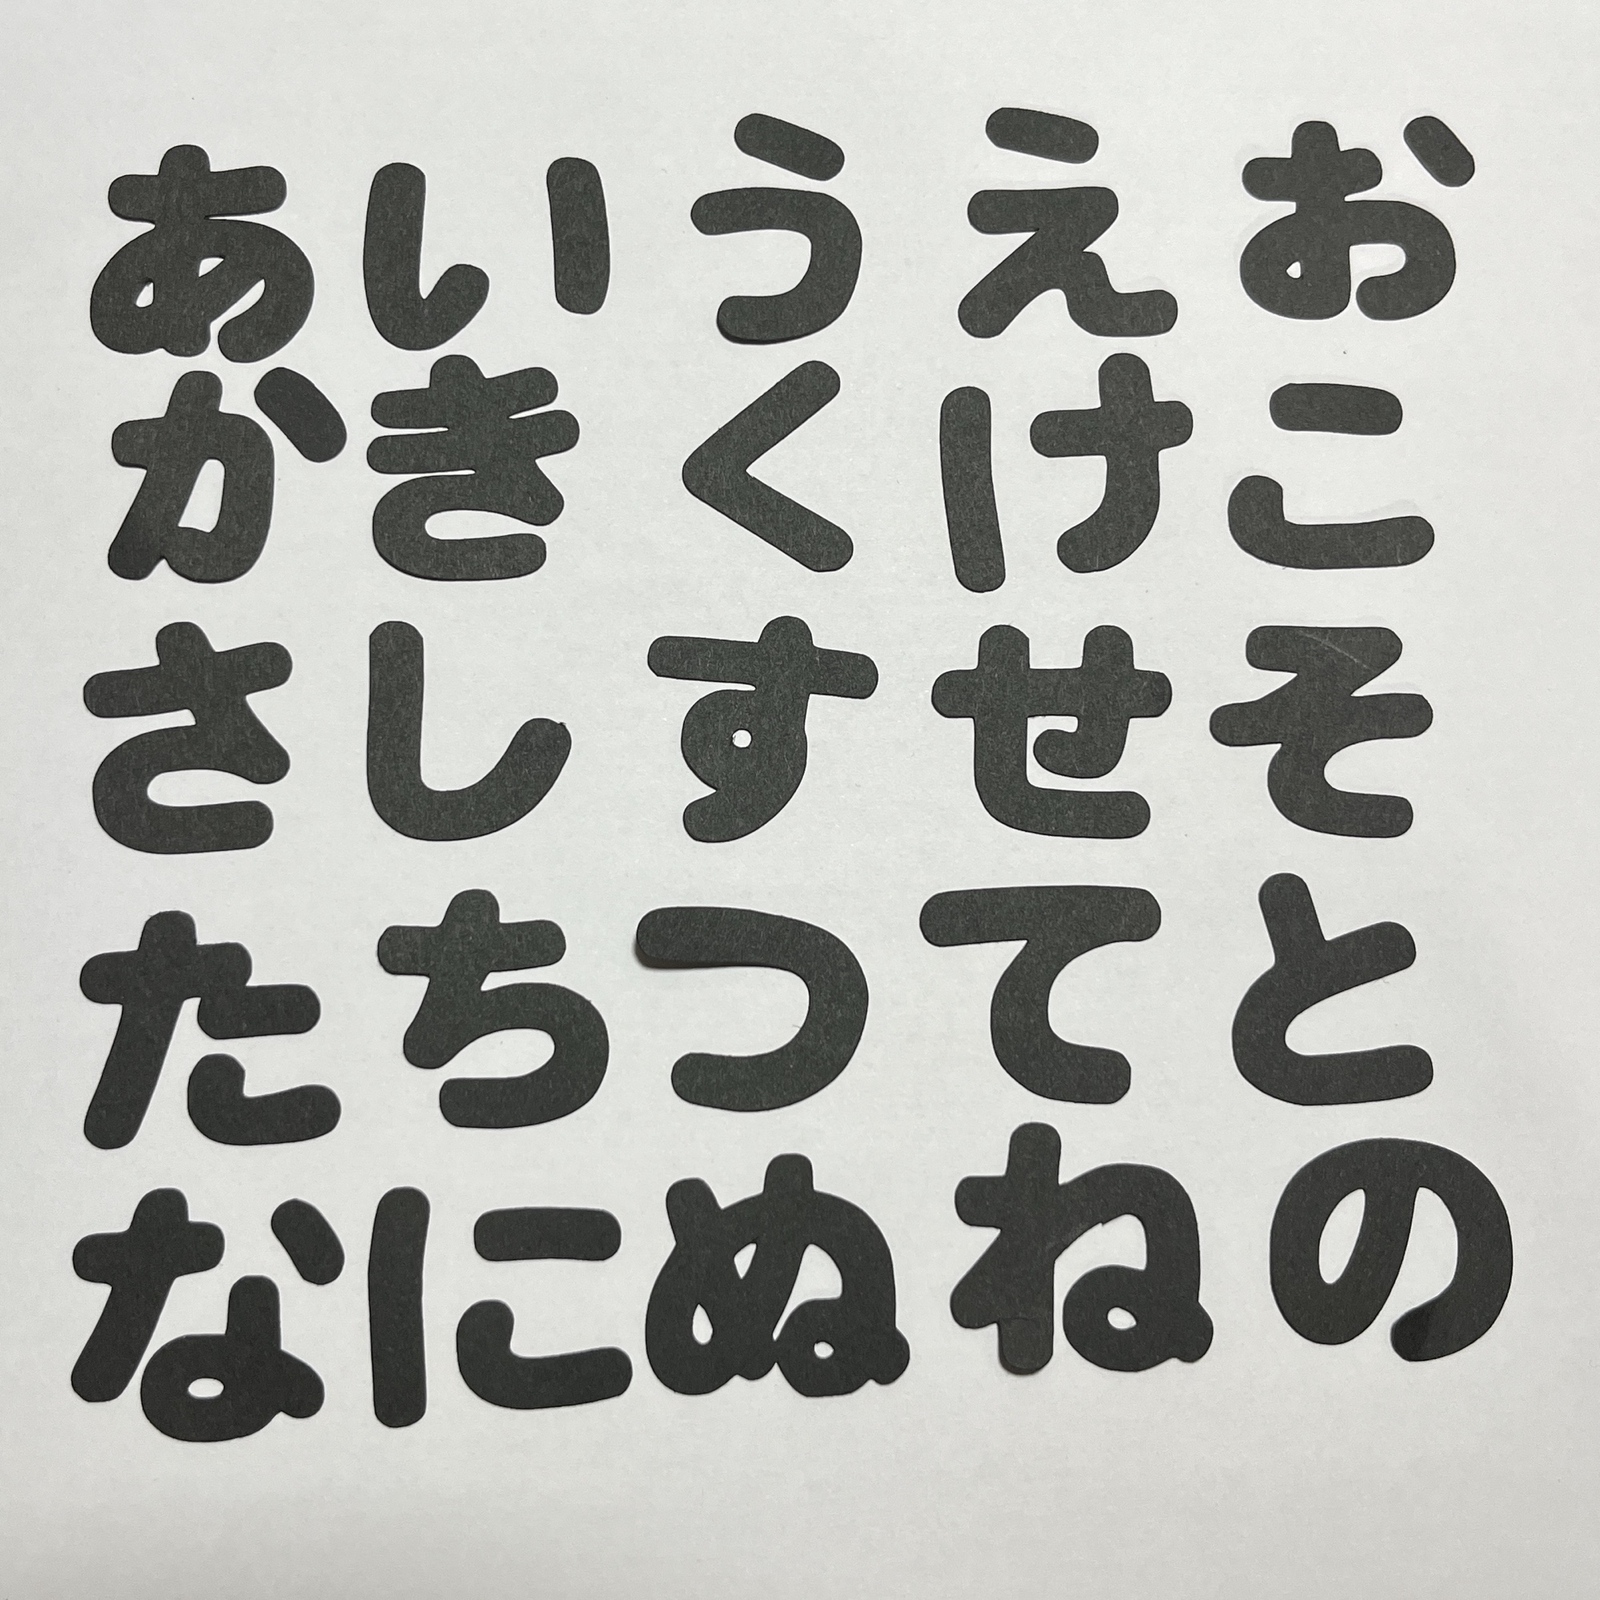 あいうえお
かきくけこ
さしすせそ
たちつてと
なにぬねの